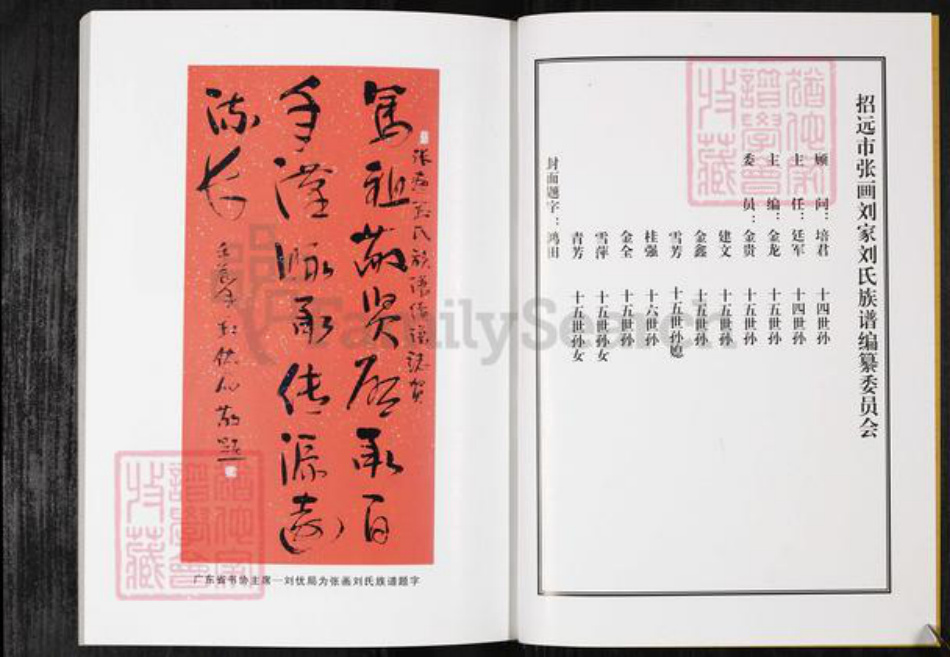 招远市张画刘家刘氏族谱编纂委员会
顾问：培君 十四世孙
主任：廷军 十四世孙
主编：金龙 十五世孙
委员：金贵 十五世孙
建文 十五世孙
金鑫 十五世孙
雪芳 十五世孙媳
桂强 十六世孙
金全 十五世孙
雪萍 十五世孙女
青芳 十五世孙女
封面题字：鸿田
笃祖敬贤启承百
年谨
脉承传源远
流长
敬题
广东省书协主席一刘优局为张画刘氏族谱题字
FamilySearch
谱学会
收藏
谱学会
收藏